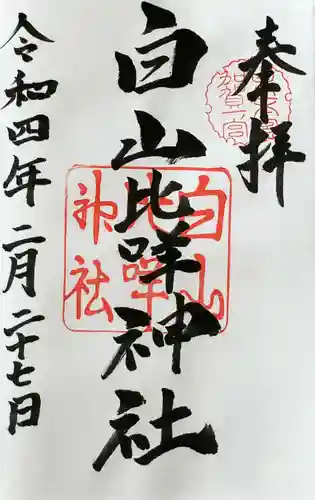 奉拝
加賀一宮
白山比咩神社
白山比咩神社
令和四年二月二十七日